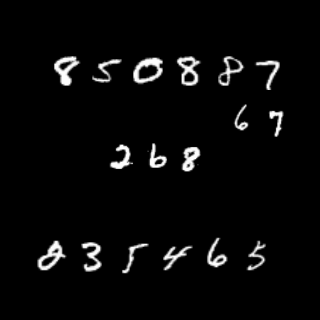 850887
67
268
235465